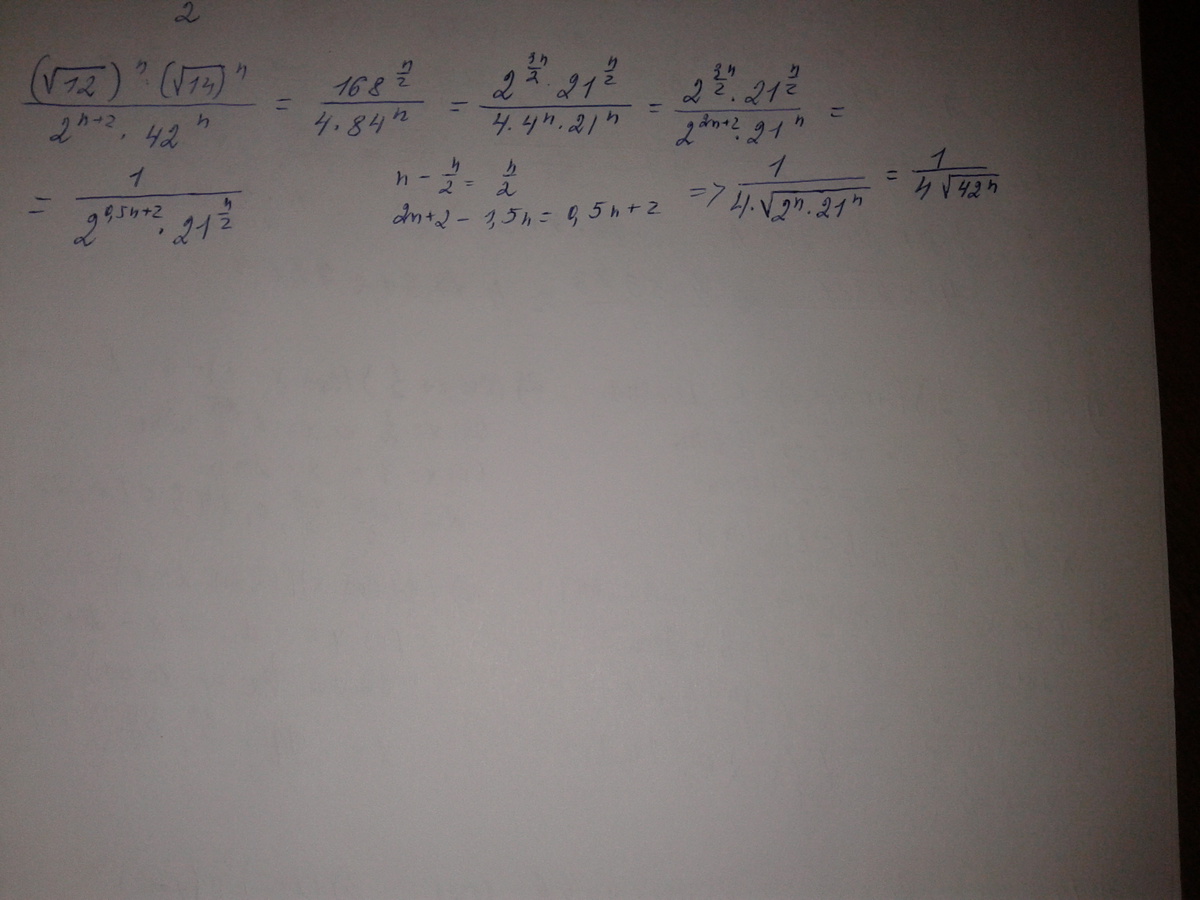 2
(√12)^n · (√14)^n / 2^(n+2) · 42^n = 168^(n/2) / 4 · 84^n = 2^(3n/2) · 21^(n/2) / 4 · 4^n · 21^n = 2^(3n/2) · 21^(n/2) / 2^(2n+2) · 21^n =
= 1 / 2^(0,5n+2) · 21^(n/2)
n - n/2 = n/2
2n+2 - 1,5n = 0,5n+2
=> 1 / 4 · √(2^n · 21^n) = 1 / 4√(42^n)